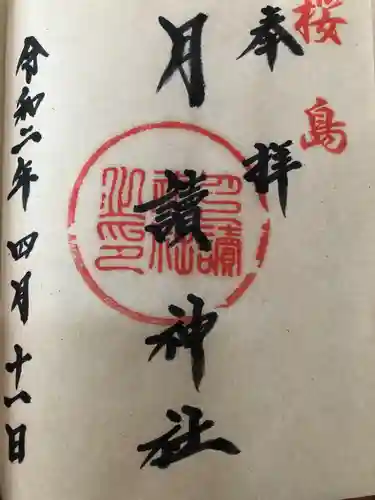 桜島
奉拝
月讀神社
月讀神社之印
令和二年四月十八日